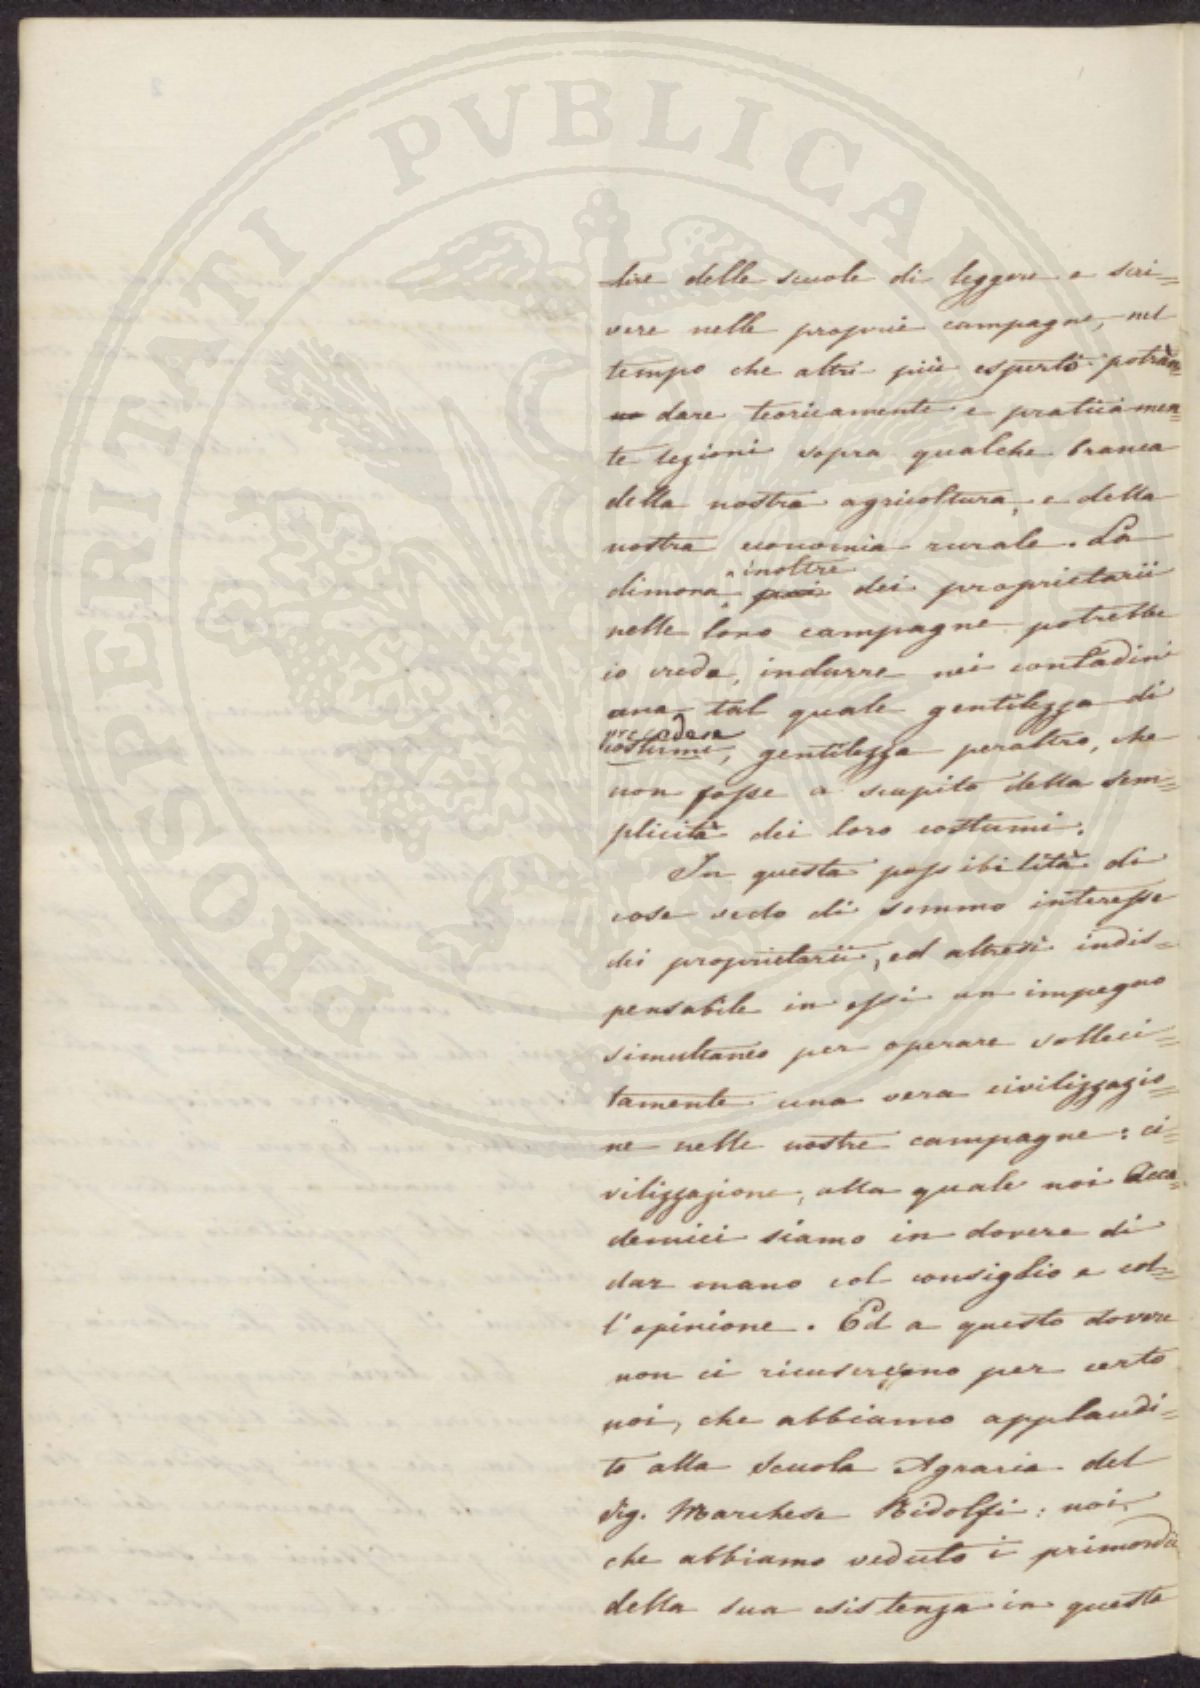 PROSPERITATI PVBLICAE
tire delle scuole di leggere e scri=
vere nelle proprie campagne, nel
tempo che altri più esperti potran=
no dare teoricamente e praticamen=
te lezioni sopra qualche branca
della nostra agricoltura, e della
nostra economia rurale. La
inoltre
dimora poi dei proprietarii
nelle loro campagne potrebbe
io credo, indurre nei contadini
una tal quale gentilezza di
costumi, gentilezza peraltro, che
non fosse a scapito della sem=
plicità dei loro costumi.
In questa possibilità di
cose vedo di sommo interesse
dei proprietarii, ed altresì indis=
pensabile in essi un impegno
simultaneo per operare solleci=
tamente una vera civilizzazio=
ne nelle nostre campagne: ci=
vilizzazione, alla quale noi Acca=
demici siamo in dovere di
dar mano col consiglio e col=
l'opinione. Ed a questo dovere
non ci ricuseremo per certo
noi, che abbiamo applaudi=
to alla Scuola Agraria del
Sig. Marchese Ridolfi: noi,
che abbiamo veduto i primordii
della sua esistenza in questo